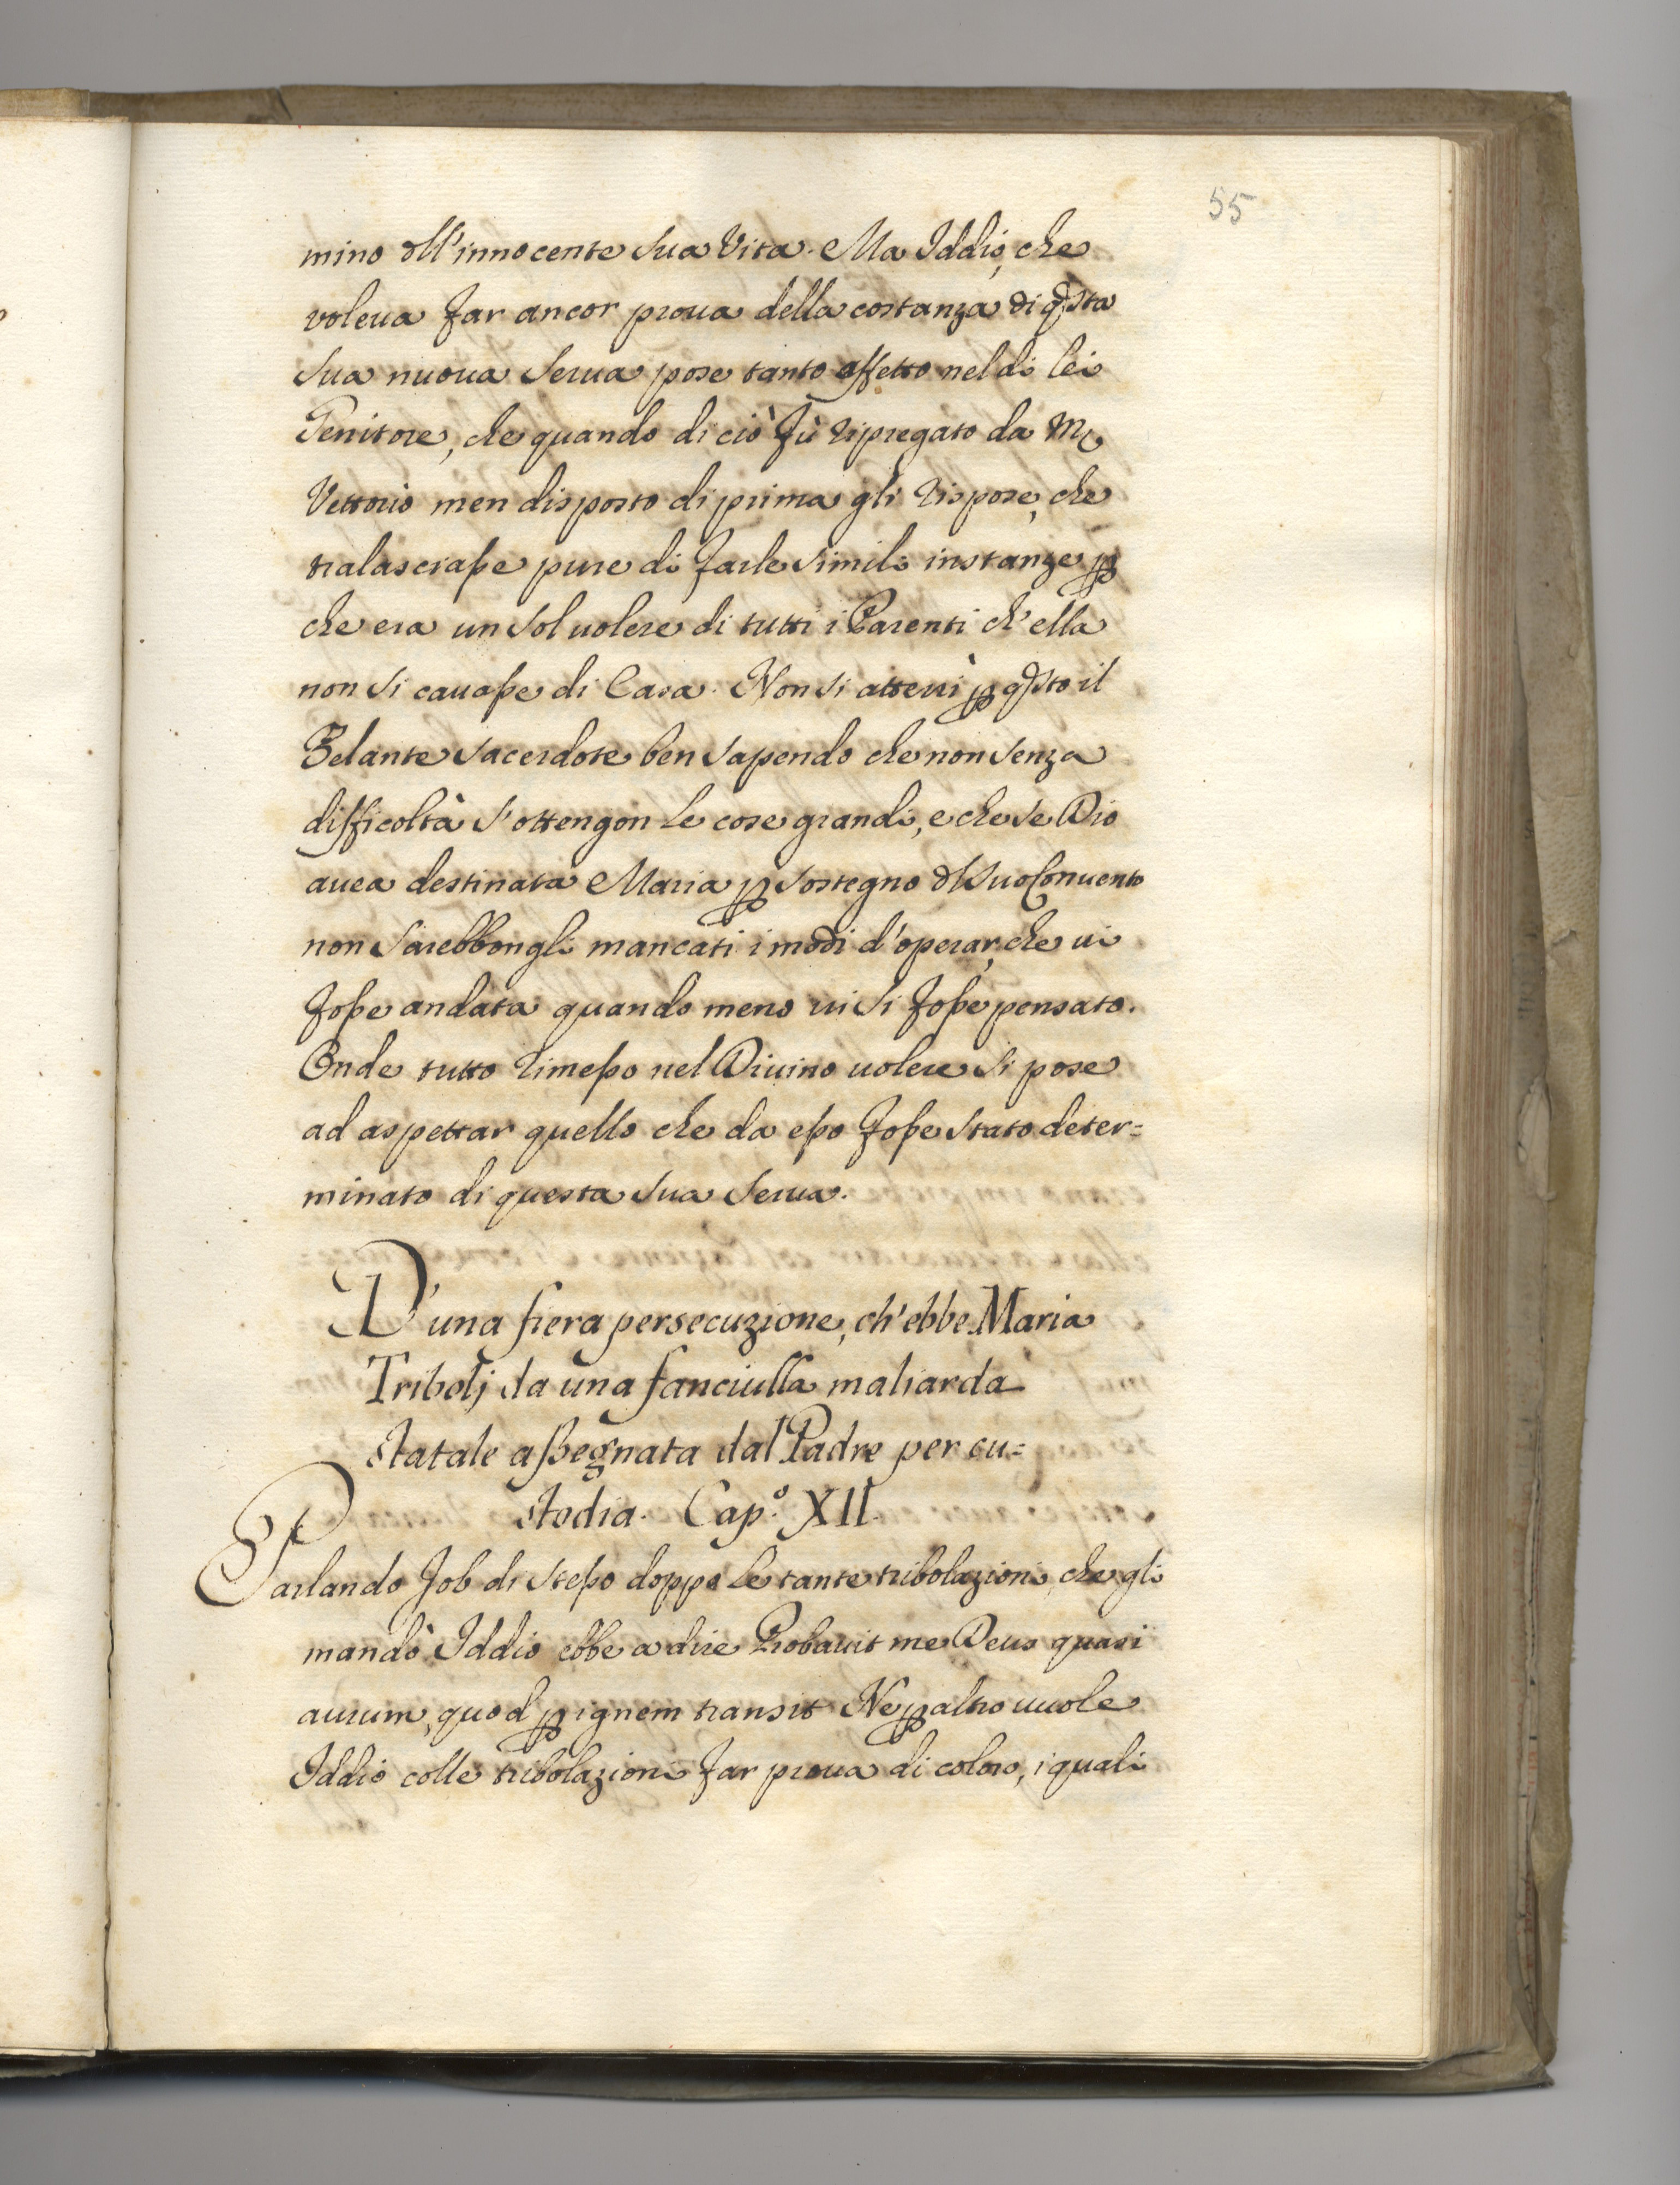 55
mino dll'innocente sua Vita. Ma Iddio, che
voleua far ancor proua della costanza di qsta
sua nuoua serua pose tanto affetto nel di lei
Genitore, che quando di ciò fù ripregato da Mr
Vettorio men disposto di prima gli rispose, che
tralasciasse pure di farle simili instanze p
che era un sol uolere di tutti i Parenti ch'ella
non si cauasse di Casa. Non si atterrì p qsto il
Zelante sacerdote ben sapendo che non senza
difficoltà s'ottengon le cose grandi, e che se Dio
auea destinata Maria p sostegno dl suo Conuento
non sarebbongli mancati i modi d'operar, che ui
fosse andata quando meno ui si fosse pensato.
Onde tutto rimesso nel Diuino uolere si pose
ad aspettar quello che da esso fosse stato deter=
minato di questa sua serua.
D'una fiera persecuzione, ch'ebbe Maria
Tribolj da una fanciulla maliarda
statale assegnata dal Padre per cu=
stodia. Cap.º XII.
Parlando Job di stesso doppo le tante tribolazioni, che gli
mandò Iddio ebbe a dire Probauit me Deus quasi
aurum, quod p ignem transit Ne p altro uuole
Iddio colle tribolazioni far proua di coloro, i quali